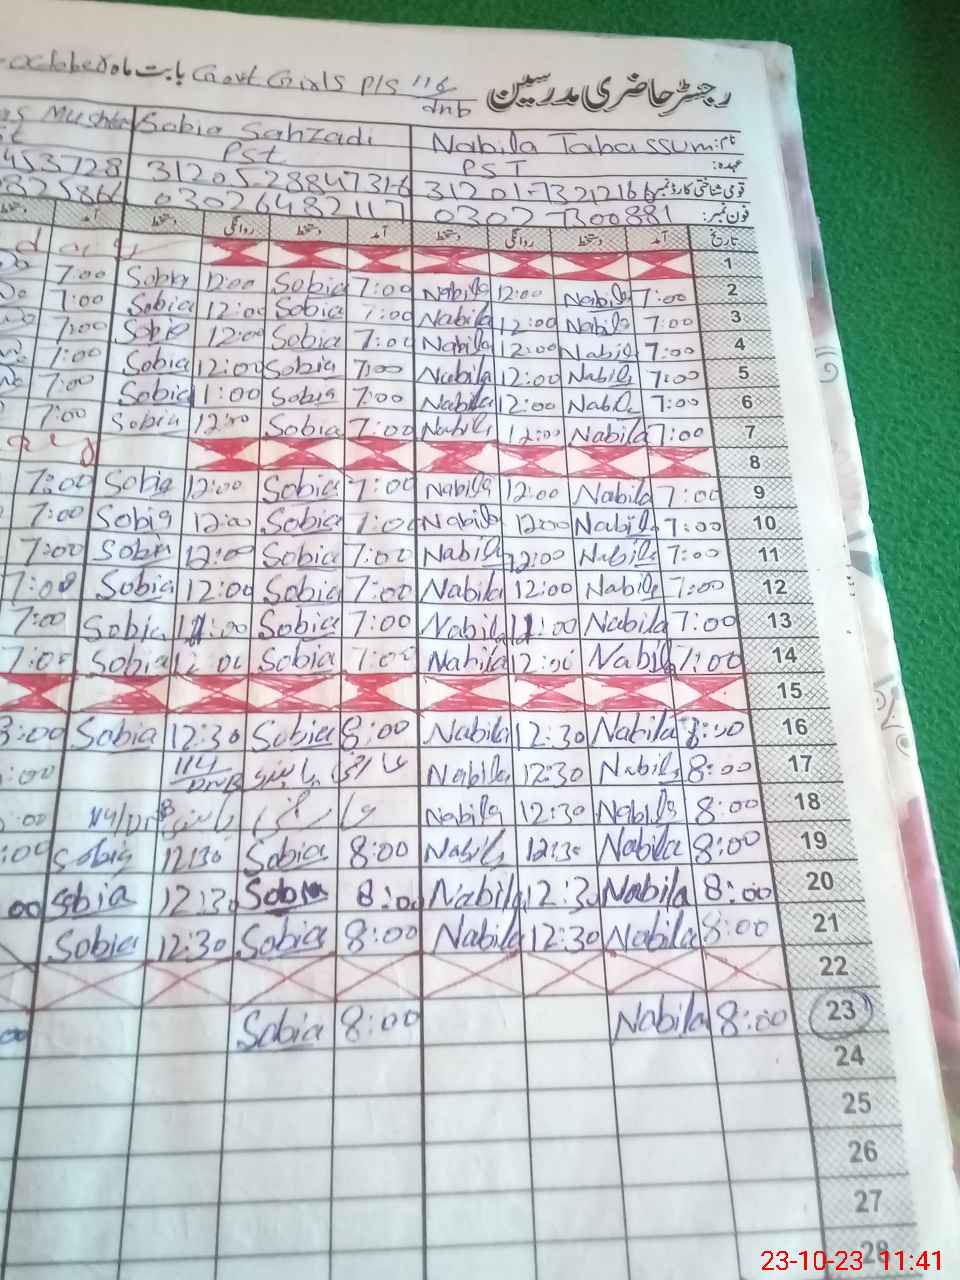 رجسٹر حاضری مدرسین Govt Girls P/S 116/dnb بابت ماہ October
نام: Nabila Tabassum Sobia Sahzadi
عہدہ: PST Pst
قومی شناختی کارڈ نمبر 31201-7321216 31205-2884731 453728
فون نمبر: 0302 7300881 03026482117 0325866
تاریخ آمد دستخط روانگی دستخط آمد دستخط روانگی دستخط آمد
1
2 7:00 Nabila 12:00 Nabila 7:00 Sobia 12:00 Sobia 7:00
3 7:00 Nabila 12:00 Nabila 7:00 Sobia 12:00 Sobia 7:00
4 7:00 Nabila 12:00 Nabila 7:00 Sobia 12:00 Sobia 7:00
5 7:00 Nabila 12:00 Nabila 7:00 Sobia 12:00 Sobia 7:00
6 7:00 Nabila 12:00 Nabila 7:00 Sobia 1:00 Sobia 7:00
7 7:00 Nabila 12:00 Nabila 7:00 Sobia 12:00 Sobia 7:00
8
9 7:00 Nabila 12:00 Nabila 7:00 Sobia 12:00 Sobia 7:00
10 7:00 Nabila 12:00 Nabila 7:00 Sobia 12:00 Sobia 7:00
11 7:00 Nabila 12:00 Nabila 7:00 Sobia 12:00 Sobia 7:00
12 7:00 Nabila 12:00 Nabila 7:00 Sobia 12:00 Sobia 7:00
13 7:00 Nabila 11:00 Nabila 7:00 Sobia 11:00 Sobia 7:00
14 7:00 Nabila 12:00 Nabila 7:00 Sobia 12:00 Sobia 7:00
15
16 8:00 Nabila 12:30 Nabila 8:00 Sobia 12:30 Sobia 8:00
17 8:00 Nabila 12:30 Nabila 114/DNB :00
18 8:00 Nabila 12:30 Nabila 114/DNB :00
19 8:00 Nabila 12:30 Nabila 8:00 Sobia 12:30 Sobia :00
20 8:00 Nabila 12:30 Nabila 8:00 Sobia 12:30 Sobia 00
21 8:00 Nabila 12:30 Nabila 8:00 Sobia 12:30 Sobia
22
23 8:00 Nabila 8:00 Sobia 00
24
25
26
27
28
23-10-23 11:41